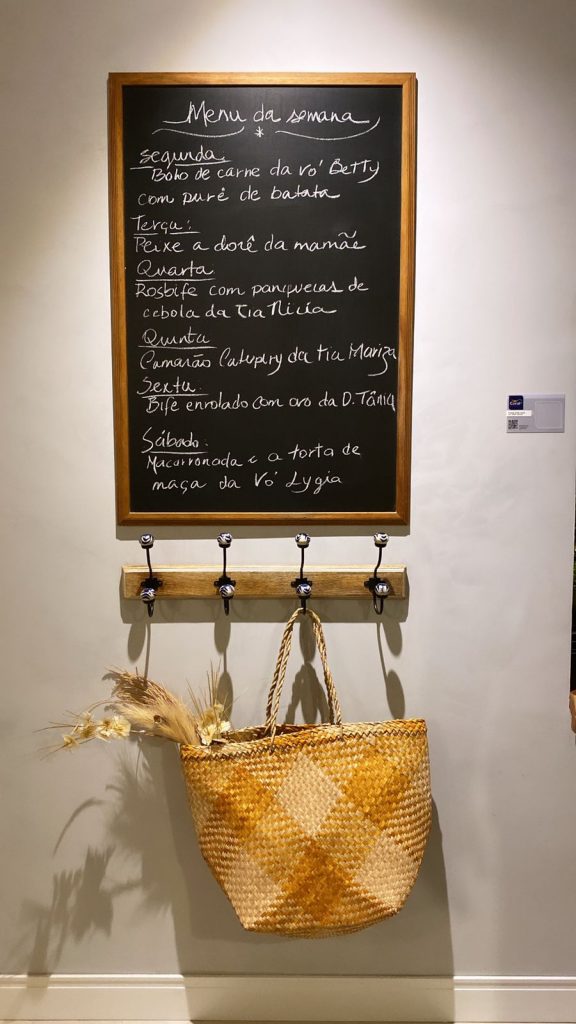 Menu da semana
*
segunda
Bolo de carne da vó Betty
com purê de batata
Terça:
Peixe a dorê da mamãe
Quarta
Rosbife com panquecas de
cebola da Tia Nicia
Quinta
Camarão Catupiry da tia Mariza
Sexta:
Bife enrolado com ovo da D. Tânia
Sábado:
Macarronada e a torta de
maça da Vó Lygia